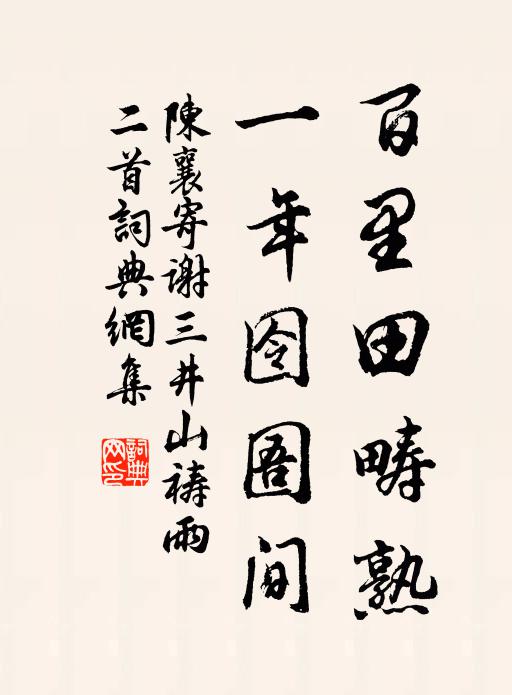 百里田疇熟
一年囹圄间
陳襄寄谢三井山祷雨
二首詞典網集
詞典网印